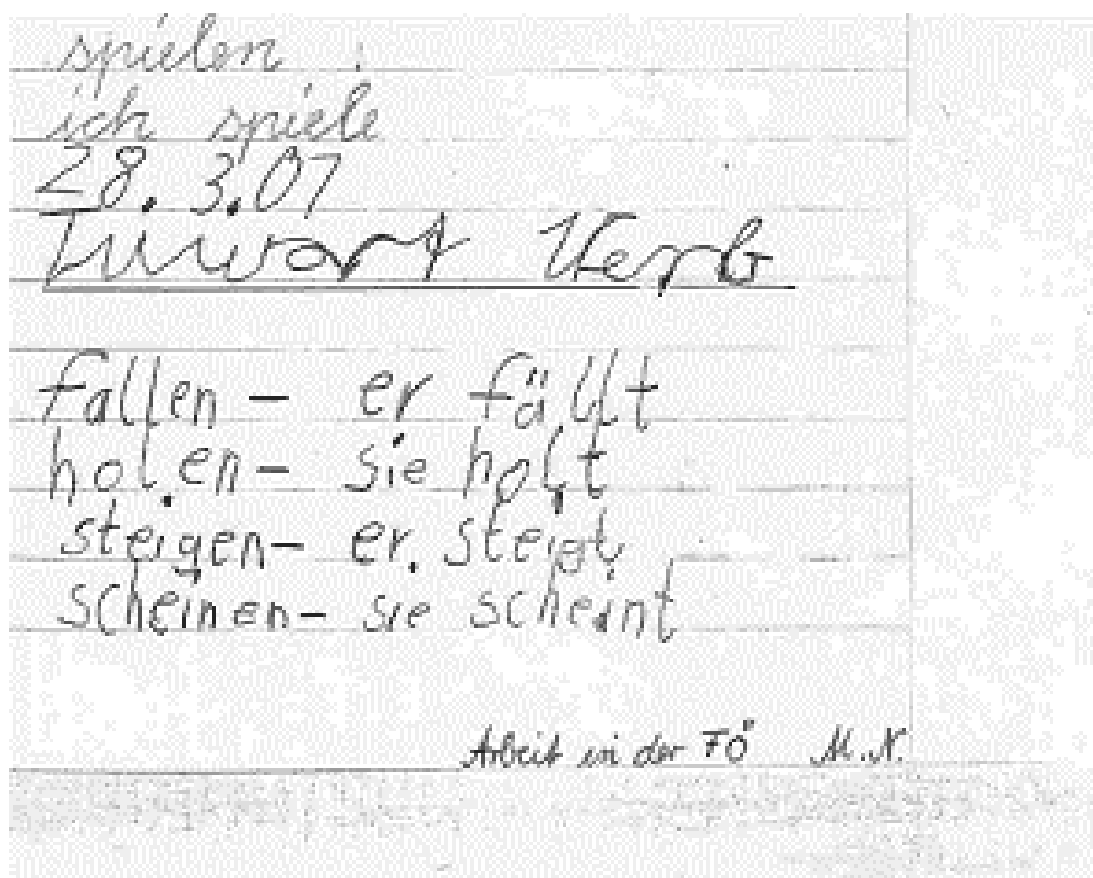 spielen
ich spiele
28. 3.07
Tuwort Verb
fallen – er fällt
holen – sie holt
steigen – er steigt
scheinen – sie scheint
Arbeit in der FÖ M.N.